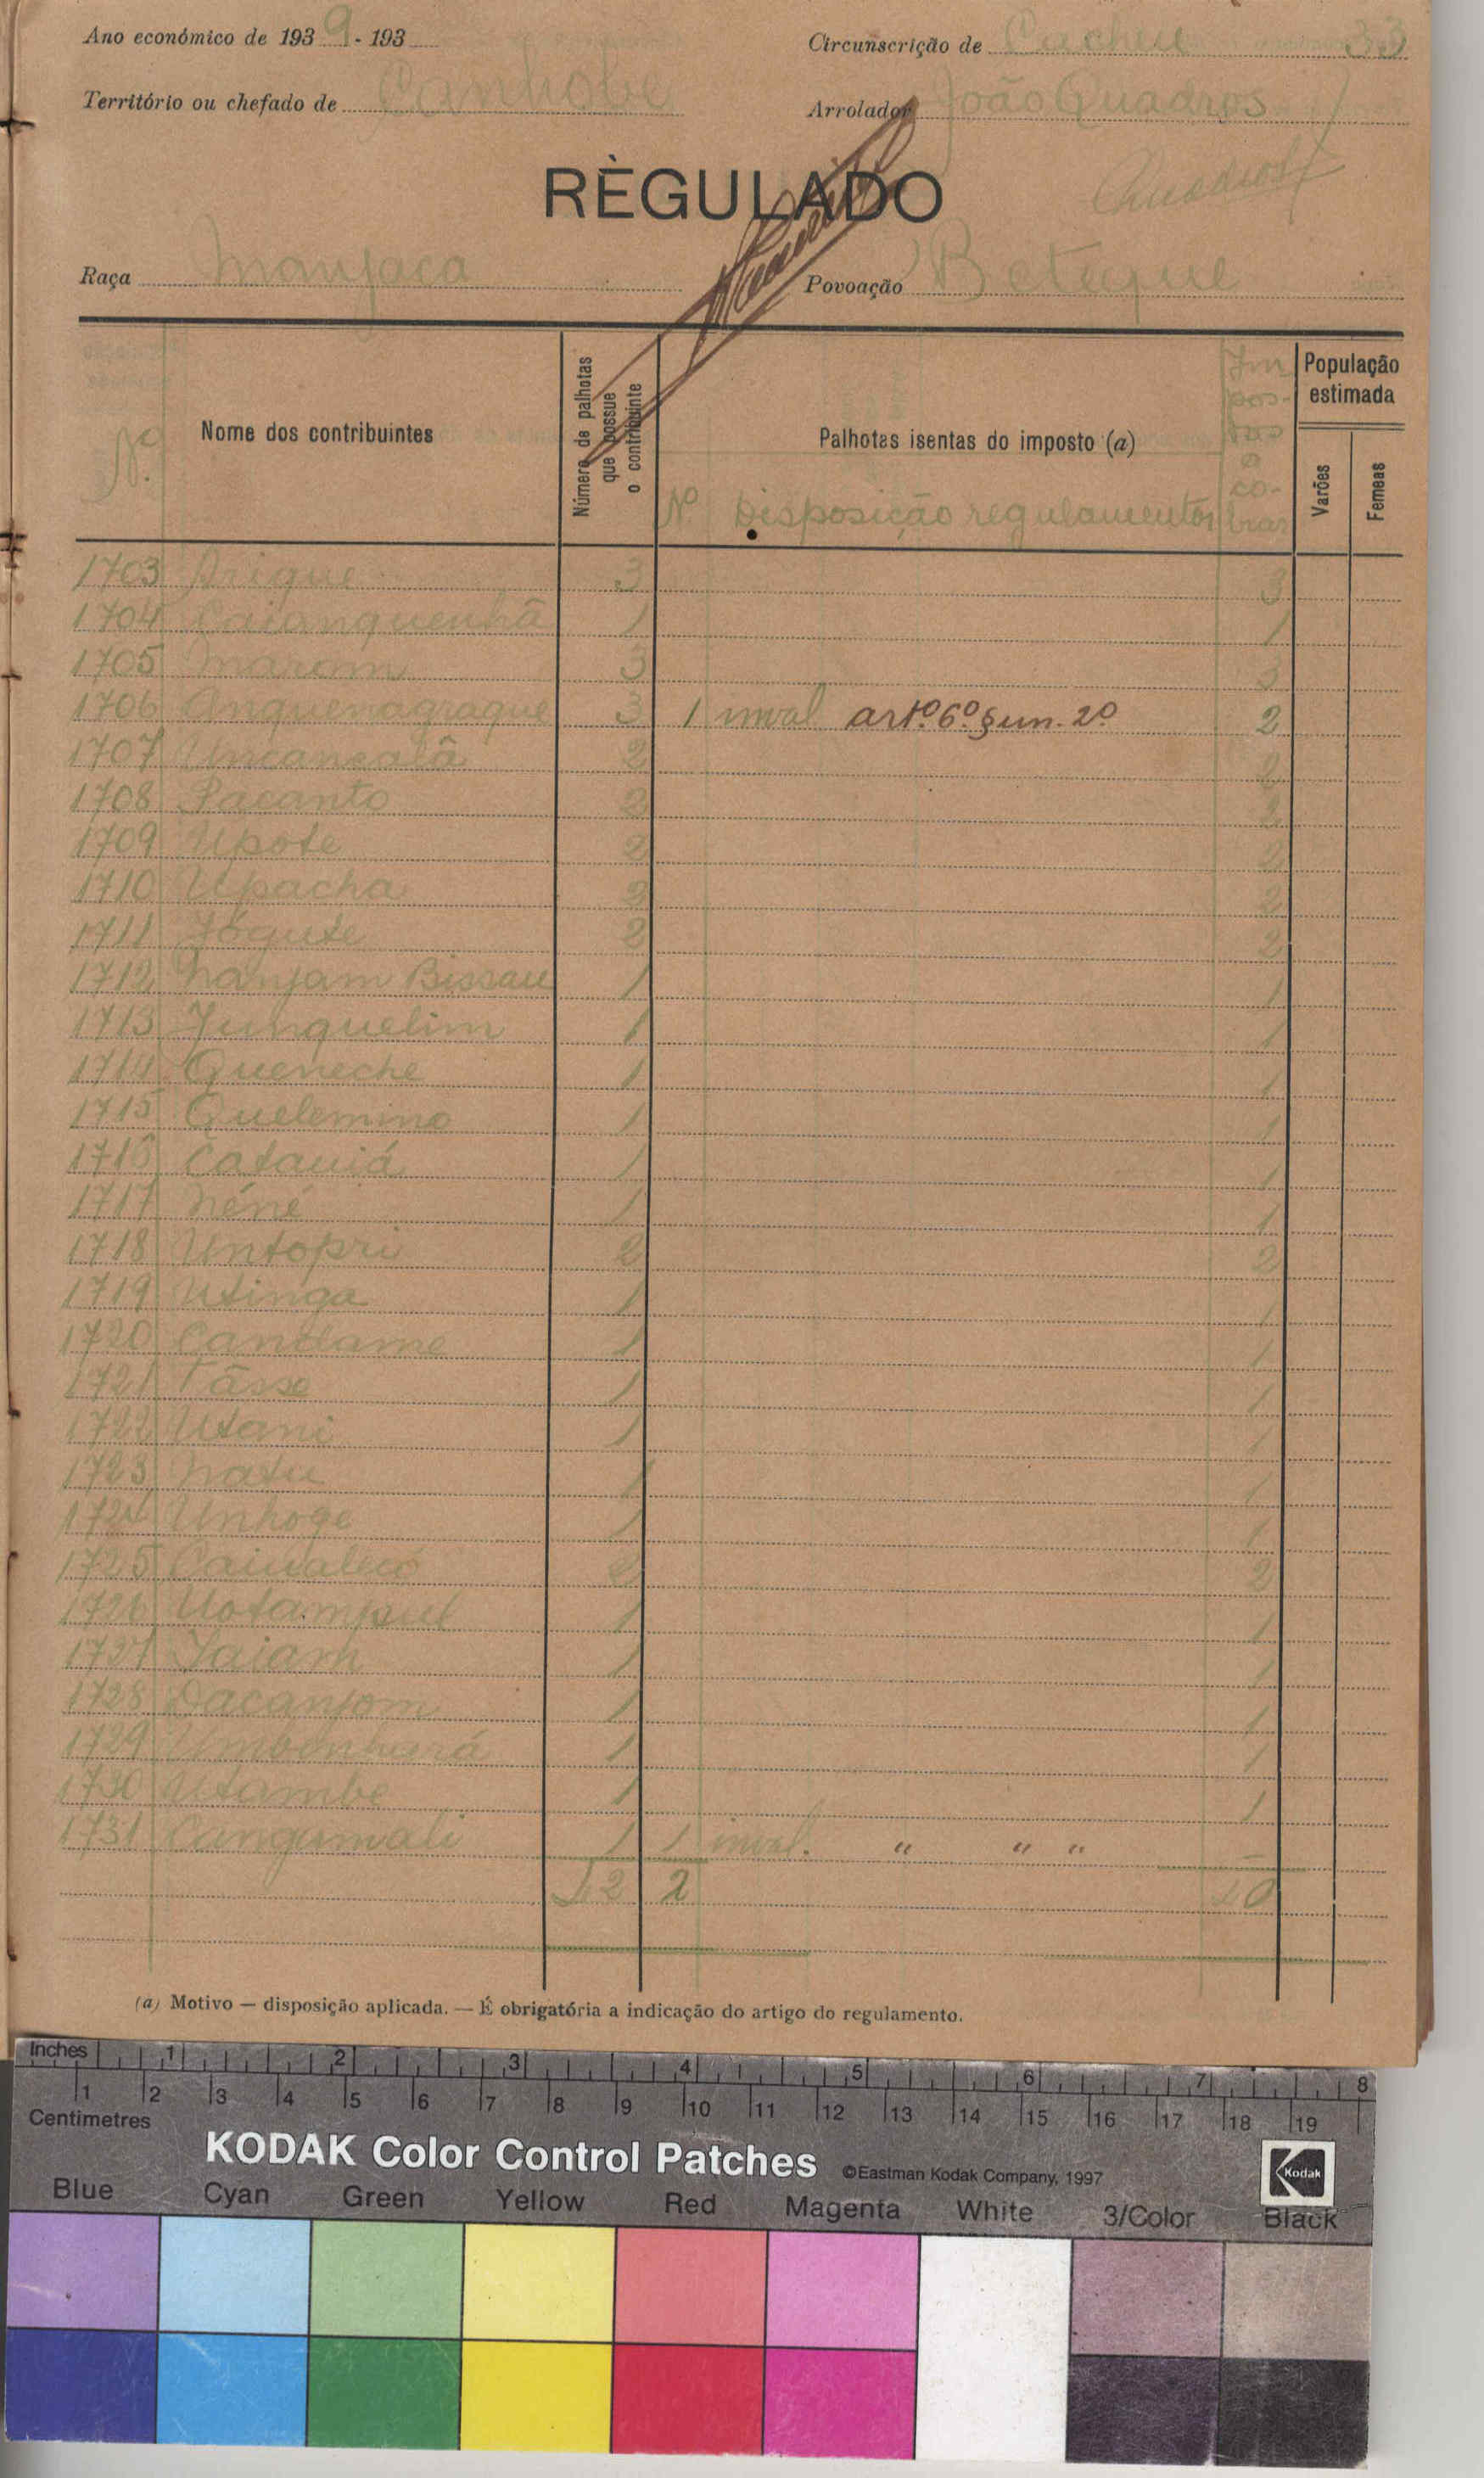 Ano económico de 1939 - 193
Circunscrição de Cacheu 33
Território ou chefado de Canhobe
Arrolador João Quadros
RÈGULADO
Quadros
Raça Manjaca
Povoação Beteque
Nº
Nome dos contribuintes
Número de palhotas que possue o contribuinte
Palhotas isentas do imposto (a)
Nº Disposição regulamentos
Impostos a cobrar
População estimada
Varões
Femeas
1703 3 3
1704 Caianquenhã 1 1
1705 Marom 3 3
1706 Anquenagraque 3 1 inval artº. 6º. § un. 2º 2
1707 2 2
1708 Pacanto 2 2
1709 Upote 2 2
1710 Upacha 2 2
1711 Jógute 2 2
1712 Nanjam Bissau 1 1
1713 Junquelim 1 1
1714 Queneche 1 1
1715 Quelemino 1 1
1716 Catauiá 1 1
1717 Néné 1 1
1718 Untopri 2 2
1719 Utinga 1 1
1720 Candame 1 1
1721 Tãsso 1 1
1722 Utani 1 1
1723 Natu 1 1
1724 Unhoge 1 1
1725 2 2
1726 Uotampul 1 1
1727 Jaiam 1 1
1728 Dacanjom 1 1
1729 1 1
1730 Utambe 1 1
1731 Cangumali 1 1 inval. " " " –
42 2 40
(a) Motivo — disposição aplicada. — É obrigatória a indicação do artigo do regulamento.
Inches 1 2 3 4 5 6 7 8
1 2 3 4 5 6 7 8 9 10 11 12 13 14 15 16 17 18 19
Centimetres
KODAK Color Control Patches ©Eastman Kodak Company, 1997 Kodak
Blue Cyan Green Yellow Red Magenta White 3/Color Black